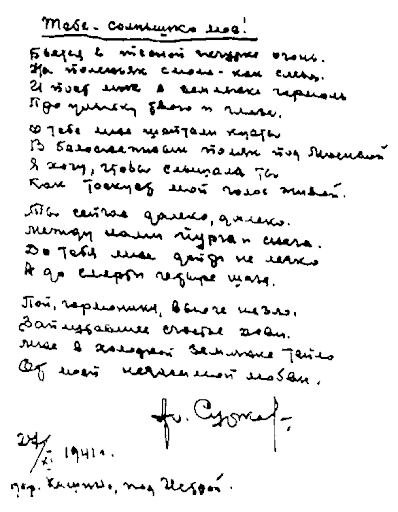 Тебе - солнышко мое!
Бьется в тесной печурке огонь.
На поленьях смола - как слеза.
И поет мне в землянке гармонь
Про улыбку твою и глаза.
О тебе мне шептали кусты
В белоснежных полях под Москвой
Я хочу, чтобы слышала ты
Как тоскует мой голос живой.
Ты сейчас далеко, далеко.
Между нами снега и снега.
До тебя мне дойти не легко
А до смерти четыре шага.
Пой, гармоника, вьюге назло.
Заплутавшее счастье зови.
Мне в холодной землянке тепло
От моей негасимой любви.
А. Сурков
27/XI 1941 г.
дер. Кашино, под Истрой.